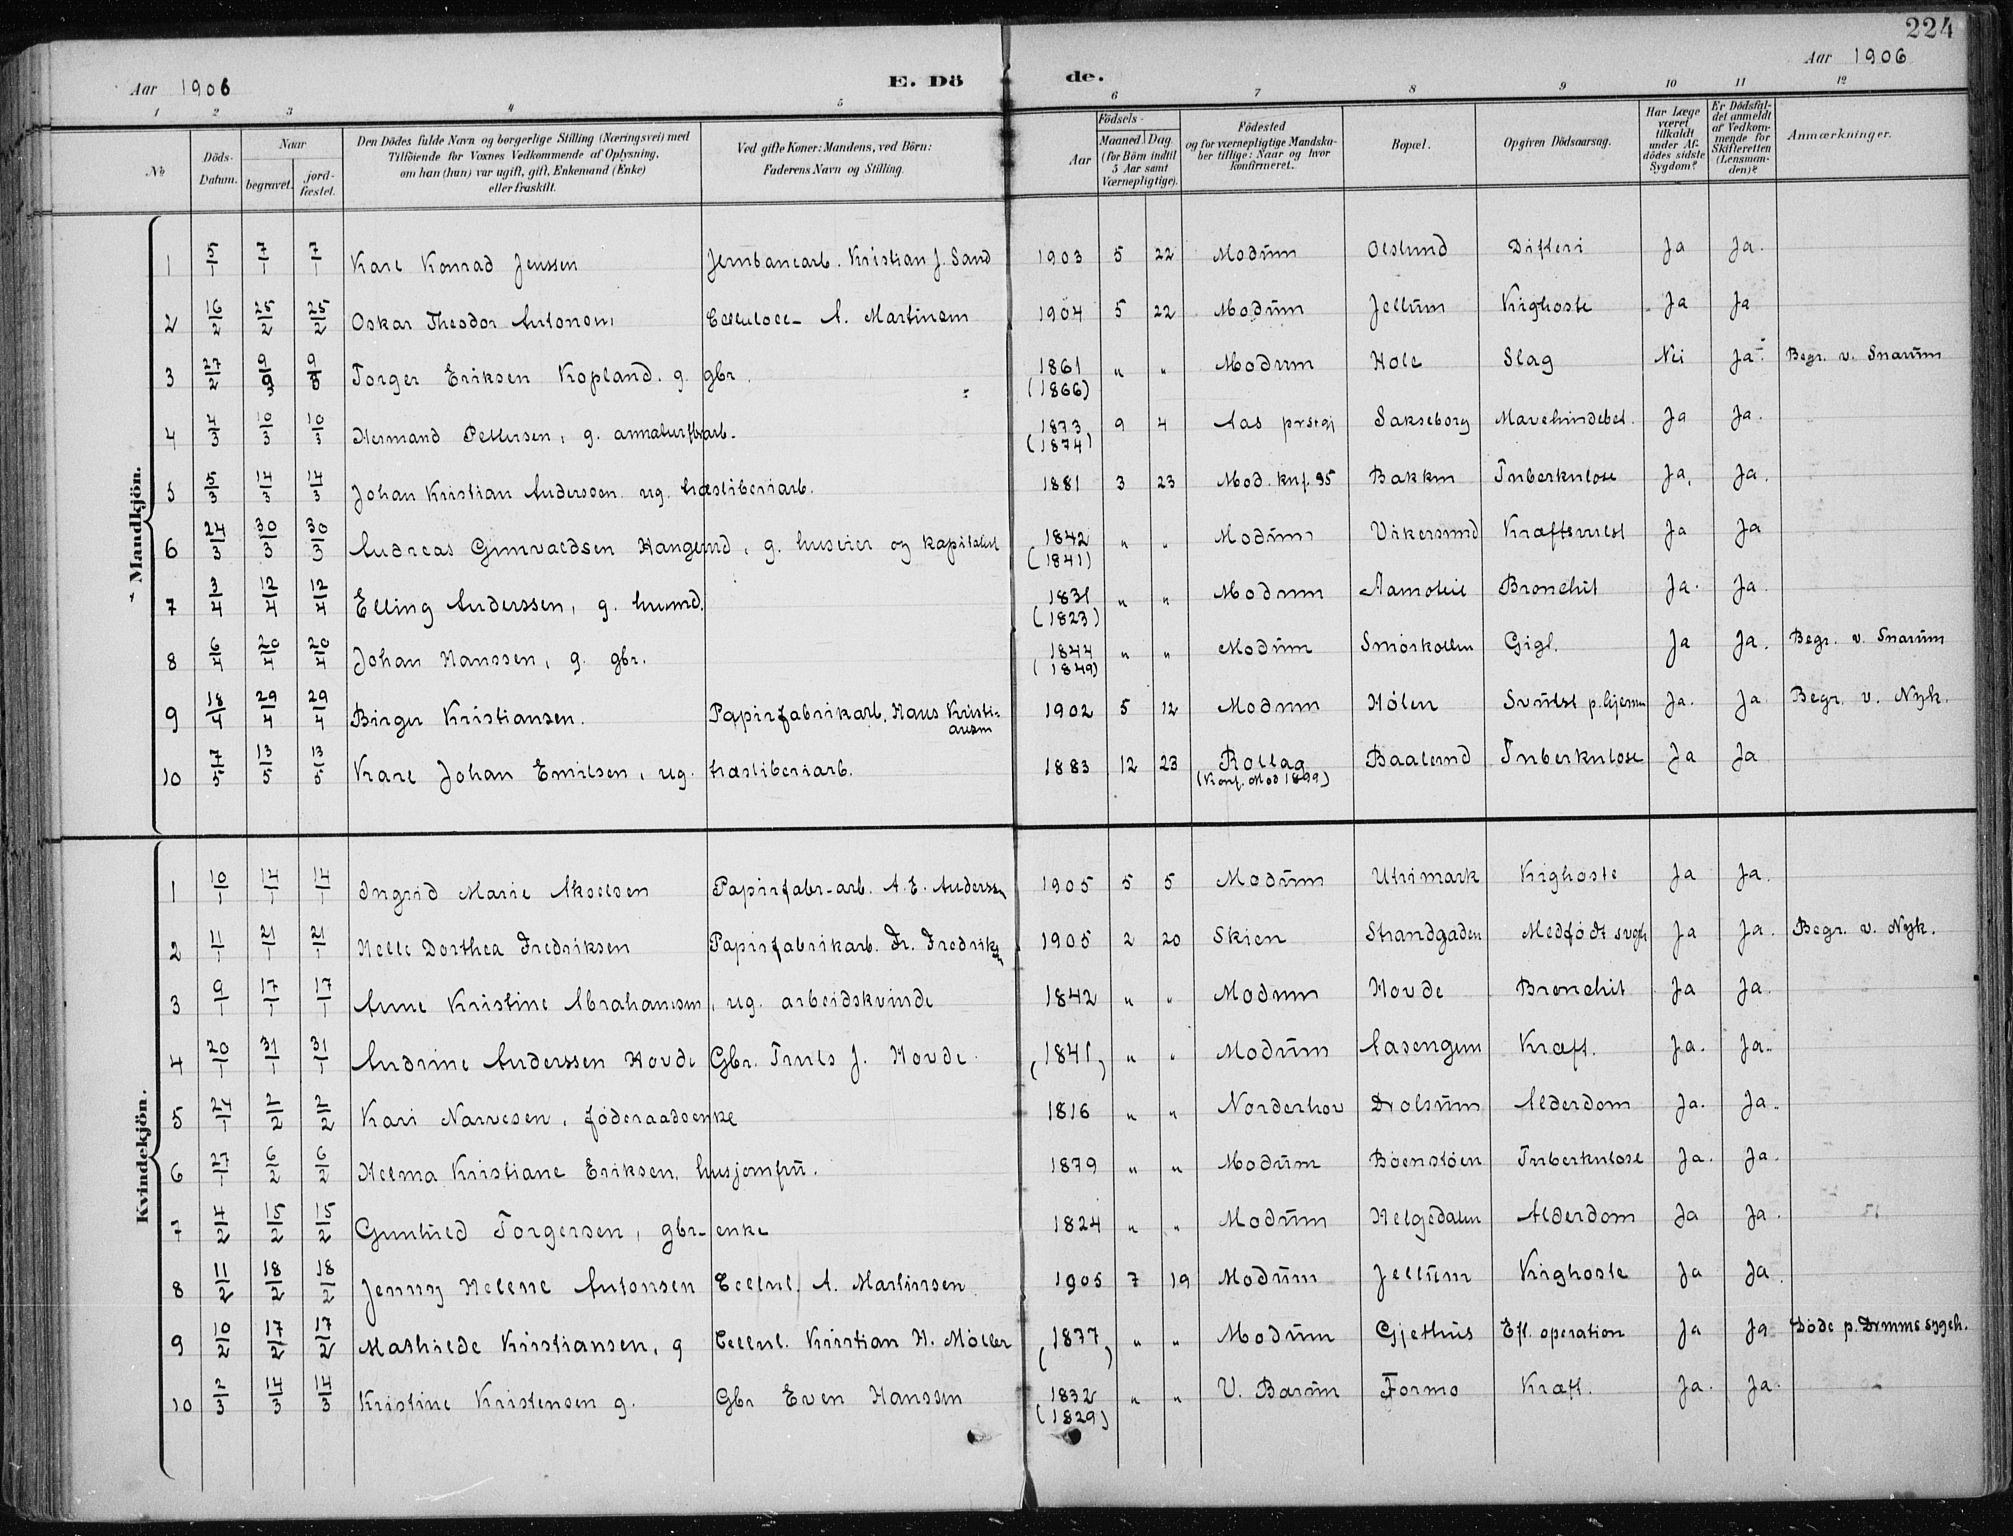 224
Aar 1906
E. Dö de.
Aar 1906
1 2 3 4 5 6 7 8 9 10 11 12
№
Döds-Datum.
Naar begravet. jordfæstet.
Den Dödes fulde Navn og borgerlige Stilling (Næringsvei) med Tilföiende for Voxnes Vedkommende af Oplysning, om han (hun) var ugift, gift, Enkemand (Enke) eller fraskilt.
Ved gifte Koner: Mandens, ved Börn: Faderens Navn og Stilling.
Födsels-
Aar
Maaned. Dag. (for Börn indtil 5 Aar samt Værnepligtige).
Födested og for værnepligtige Mandskaber tillige: Naar og hvor konfirmeret.
Bopæl.
Opgiven Dödsaarsag.
Har Læge været tilkaldt under Afdödes sidste Sygdom?
Er Dödsfaldet anmeldt af Vedkommende for Skifteretten (Lensmanden)?
Anmærkninger.
Mandkjön.
1 5/1 7/1 7/1 Karl Konrad Jenssen Jernbanearb. Kristian J. Sand 1903 5 22 Modum Oeslund Difteri Ja Ja.
2 16/2 25/2 25/2 Oskar Theodor Antonsen Cellulose- A. Martinsen 1904 5 22 Modum Jellum Kighoste Ja Ja
3 27/2 9/3 9/3 Torger Eriksen Kopland. g. gbr. 1861 (1866) " " Modum Hole Slag Nei Ja. Begr. v. Snarum
4 4/3 10/3 10/3 Hermand Pettersen, g. 1873 (1874) 9 4 Aas prstgj Sakseborg Mavehindebet. Ja Ja.
5 5/3 14/3 14/3 Johan Kristian Anderssen ug. træsliberiarb. 1881 3 23 Mod. knf. 95 Bakken Tuberkulose Ja, Ja.
6 24/3 30/3 30/3 Andreas Gunvaldsen Haugerud, g. huseier og kapitalist 1842 (1841) " " Modum Vikersund Kræftsvulst Ja Ja
7 3/4 12/4 12/4 Elling Anderssen, g. husmd. 1831 (1823) " " Modum Aamoteie Bronchit Ja. Ja.
8 6/4 20/4 20/4 Johan Hanssen, g. gbr. 1844 (1849) " " Modum Smørkollen Gigt. Ja Ja. Begr. v. Snarum
9 18/4 29/4 29/4 Birger Kristiansen. Papirfabrikarb. Hans Kristiansen 1902 5 12 Modum Hólen Svulst p. hjernen Ja. Ja. Begr. v. Nyk.
10 7/5 13/5 13/5 Karl Johan Emilsen, ug. træsliberiarb. 1883 12 23 Rollag (Konf. Mod 1899) Baalerud Tuberkulose Ja Ja
Kvindekjön.
1 10/1 14/1 14/1 Ingrid Marie Akselsen Papirfabr-arb. A. E. Anderssen 1905 5 5 Modum Utrimark Kighoste Ja Ja.
2 11/1 21/1 21/1 Helle Dorthea Fredriksen Papirfabrikarb. Fr. Fredriksen 1905 2 20 Skien Strandgaden Medfødt svagh Ja Ja. Begr. v. Nyk.
3 9/1 17/1 17/1 Anne Kristine Abrahamsen, ug. arbeidskvinde 1842 " " Modum Hovde Bronchit Ja Ja.
4 20/1 31/1 31/1 Andrine Anderssen Hovde Gbr. Truls J. Hovde. (1841) " " Modum Aasengen Kræft. Ja. Ja.
5 24/1 2/2 2/2 Kari Narvesen, føderaadsenke 1816 " " Norderhov Drolsum Alderdom Ja. Ja.
6 27/1 6/2 6/2 Helma Kristiane Eriksen, husjomfru. 1879 " " Modum Böenstöen Tuberkulose Ja. Ja.
7 4/2 15/2 15/2 Gunhild Torgersen, gbr-enke 1824 " " Modum Helgedalen Alderdom Ja Ja.
8 11/2 18/2 18/2 Jenny Helene Antonsen Cellul. A. Martinsen 1905 7 19 Modum Jellum Kighoste Ja Ja.
9 10/2 17/2 17/2 Mathilde Kristiansen, g Cellul. Kristian H. Möller (1877) " " Modum Gjethus Eft. operation Ja Ja Döde p. Drmms sygeh.
10 2/3 14/3 14/3 Kristine Kristensen g. Gbr Even Hanssen 1832 (1829) " " V. Barum Formo Kræft. Ja. Ja.